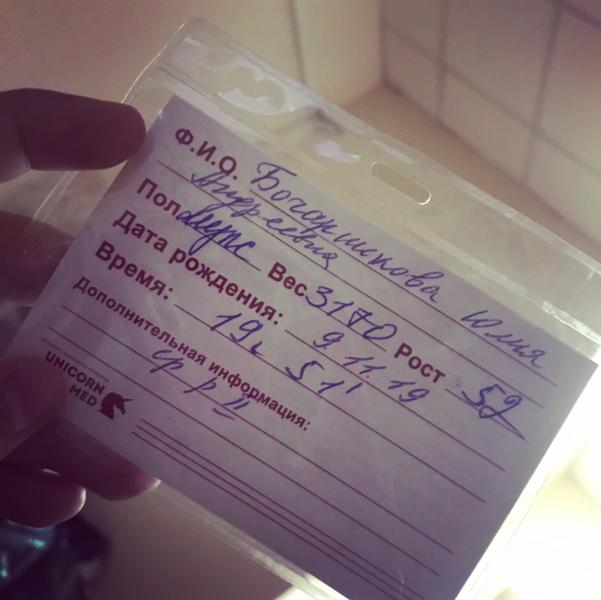 Ф.И.О. Богданчикова Юлия
Андреевна
Пол муж Вес 3170 Рост 52
Дата рождения: 9.11.19
Время: 19ч 51'
Дополнительная информация:
UNICORN
MED